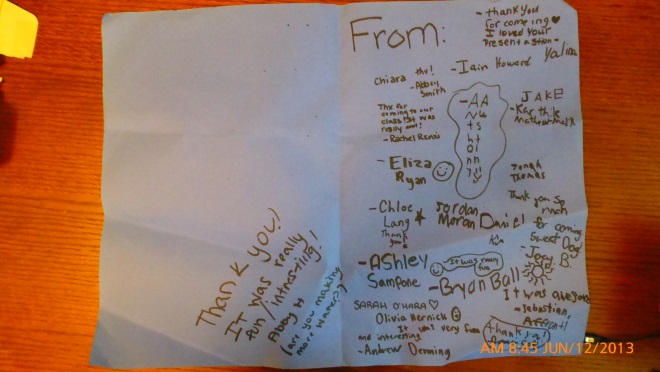 From:
- thank you
for comeing ♥
I loved your
Presentation -
Yalina
- Iain Howard
Chiara
thx!
- Abbey
Smith
Thx for
coming to our
class! It was
really cool!
- Rachel
JAKE
- Karthik
- Eliza
Ryan
Jonah
Thomas
- Chloe
Lang
Thank
you!
Jordan
Moran
Daniel
Kim
Thank you so
much
for coming
Sweet Dog
- Jered B.
- Ashley
Sampone
It was really
fun
- Bryan Ball
It was awesome
- Sebastian
SARAH O'HARA ♡
Olivia Hernick
It was very fun
and interesting
- Andrew Deming
thank ya!
Thank you!
It was really
fun/intresting!
Abby H
(are you making
more Homer??)
AM 8:45 JUN/12/2013